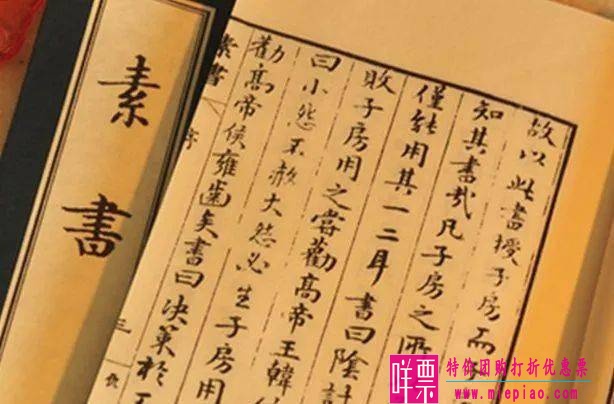 故以此書授子房而
知其書哉凡子房之所
僅能用其一二耳書曰陰計
敗子房用之嘗勸高帝王韓
曰小怨不赦大怨必生子房用
勸高帝侯雍齒矣書曰决策於
素書 序 三
素書
咩票
特价团购打折优惠票
www.miepiao.com